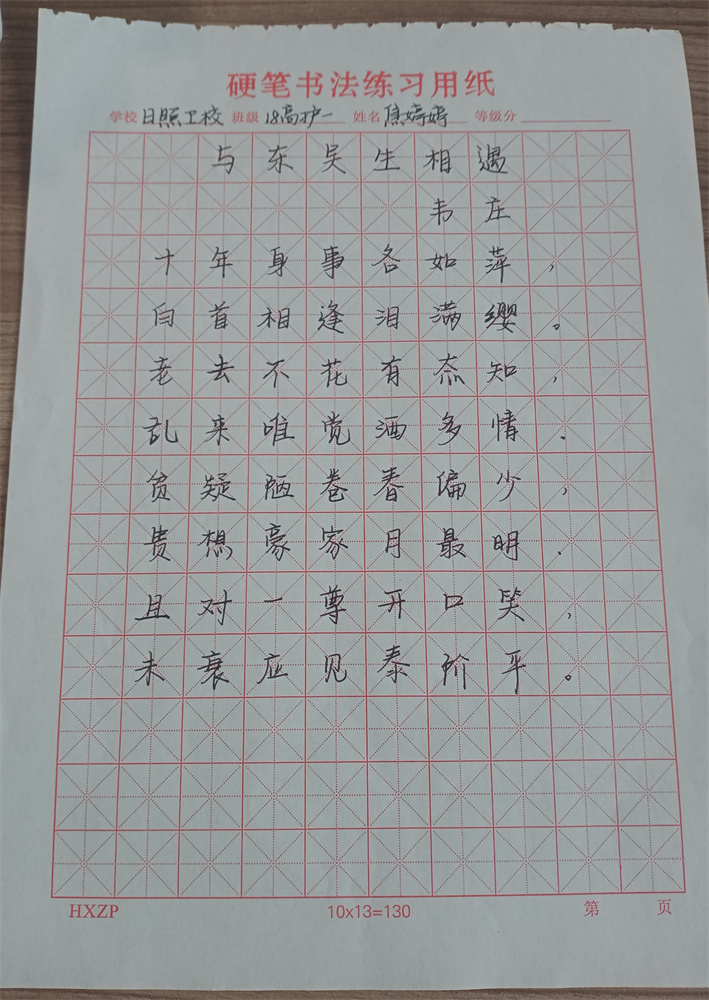 硬笔书法练习用纸
学校 日照卫校 班级 18高护一 姓名 焦婷婷 等级分
与东吴生相遇
韦庄
十年身事各如萍，
白首相逢泪满缨。
老去不花有态知，
乱来唯觉酒多情.
贫疑陋巷春偏少，
贵想豪家月最明.
且对一尊开口笑，
未衰应见泰阶平。
HXZP 10x13=130 第 页